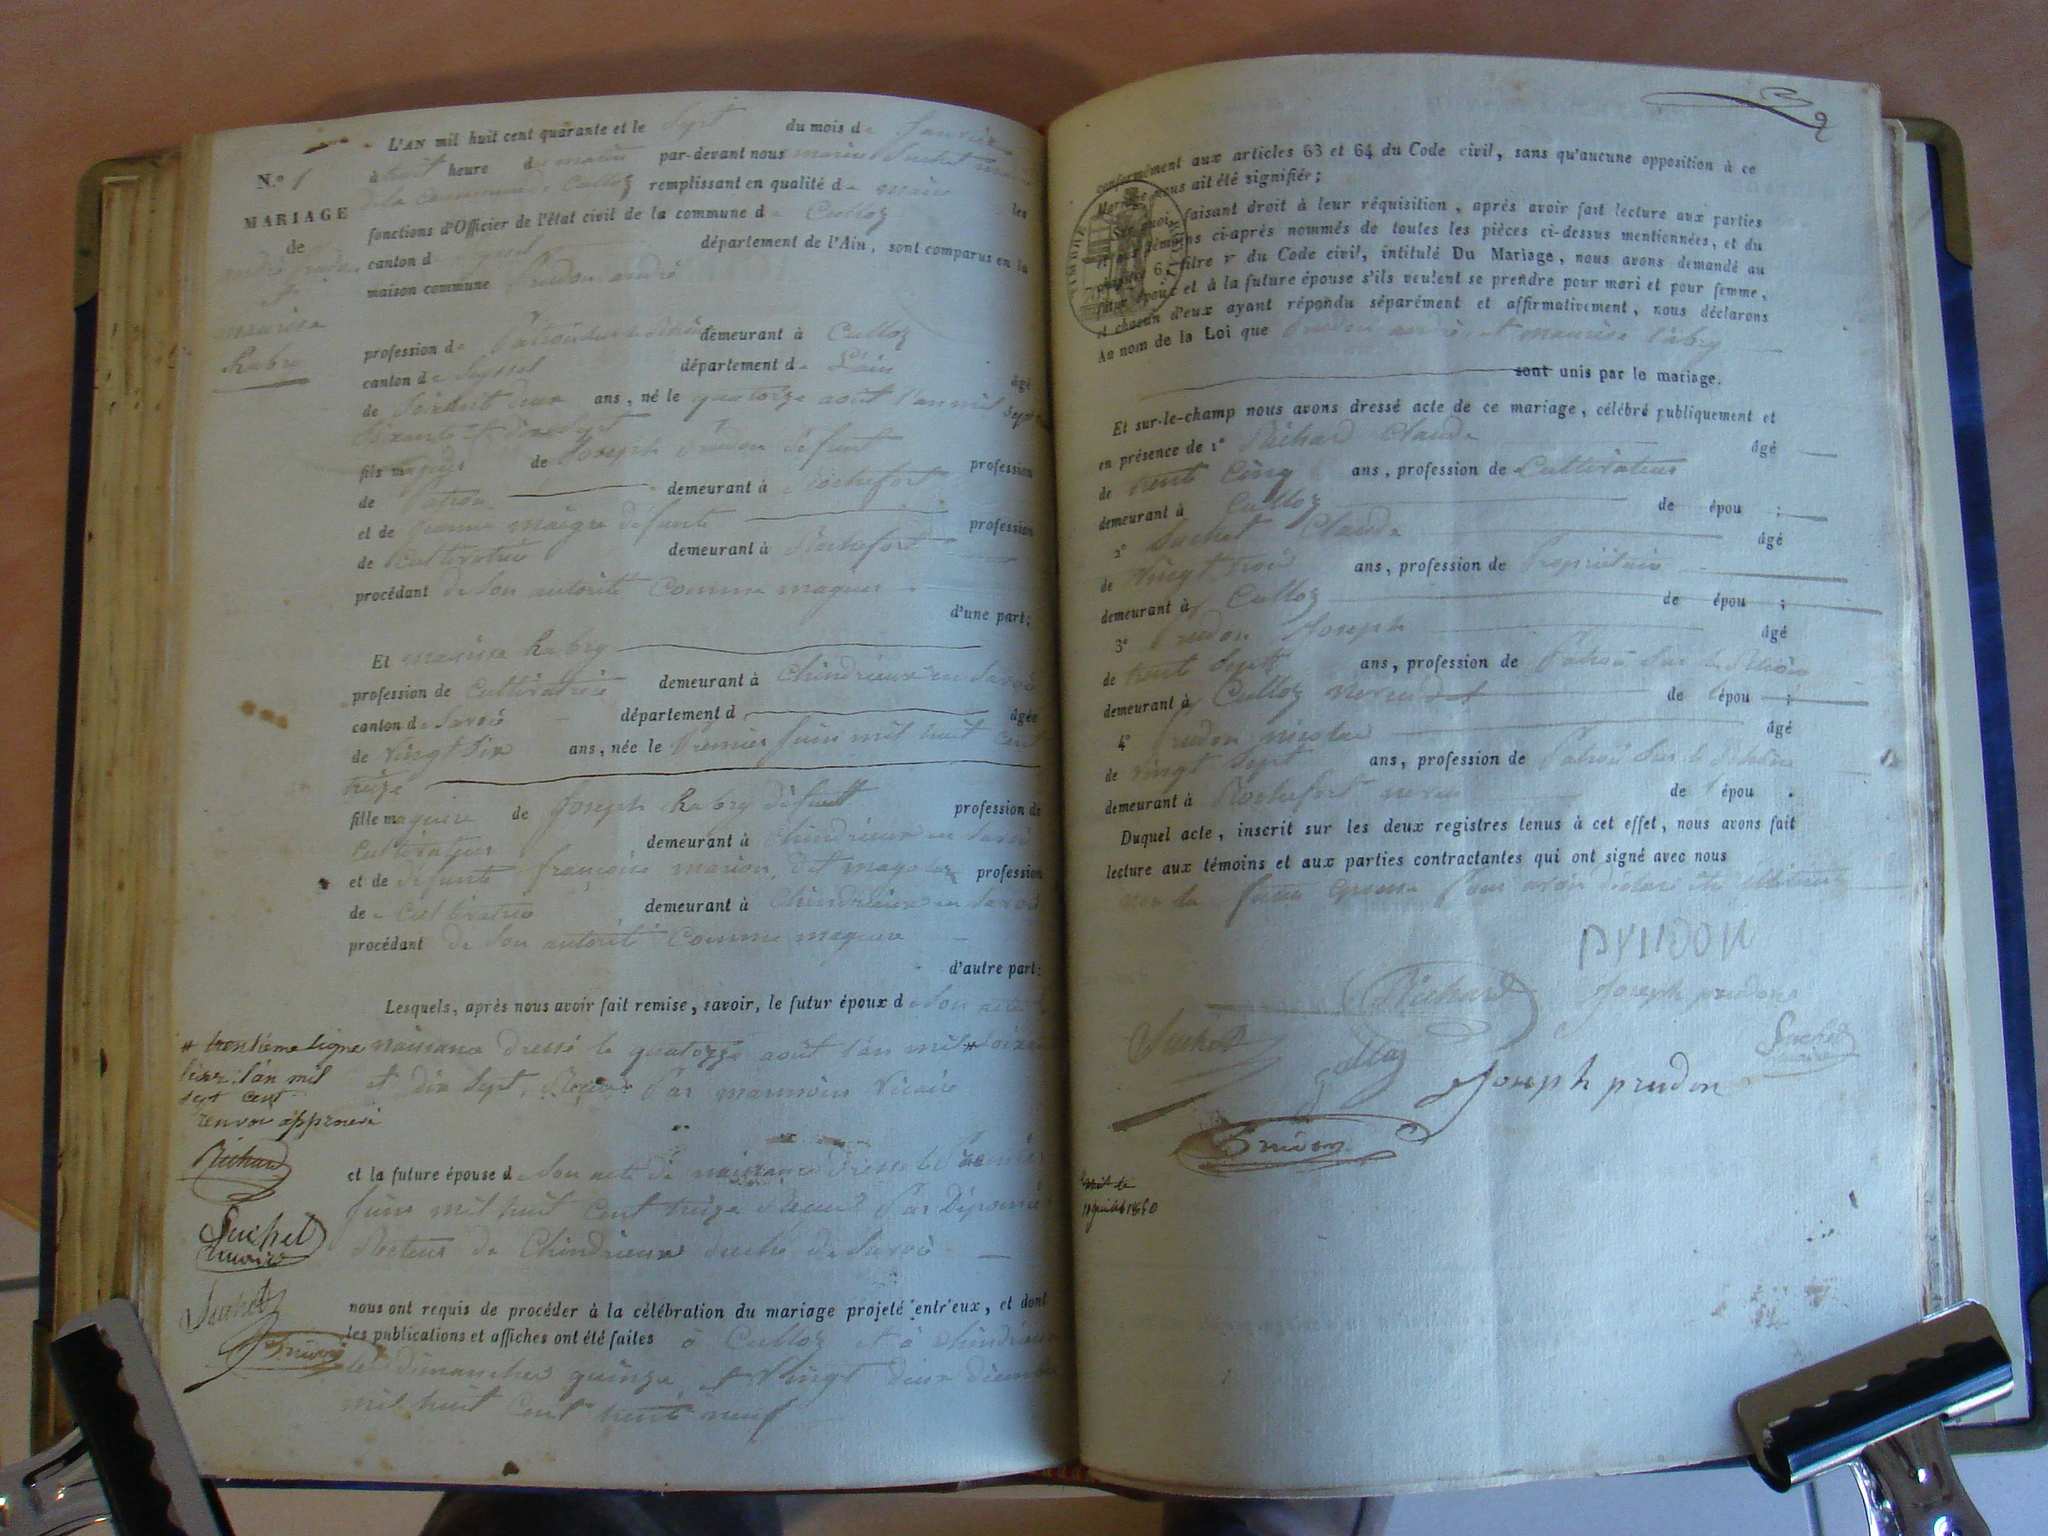 N.º 1
MARIAGE
de
andré prudon
et
maurise
Rabry
L'AN mil huit cent quarante et le sept du mois de Janvier
à huit heure du matin par-devant nous maurice Suchet maire
de la Commune de Culloz remplissant en qualité de maire les
fonctions d'Officier de l'état civil de la commune de Culloz
canton de Seyssel département de l'Ain, sont comparus en la
maison commune Prudon andré
profession de Patron sur le Rhône demeurant à Culloz
canton de Seyssel département de L'ain âgé
de Soixante deux ans, né le quatorze août l'an mil sept cent
Soixante et dix sept
fils majeur de Joseph Prudon défunt profession
de Patron demeurant à Rochefort
et de jeanne maigre défunte profession
de Cultivatrice demeurant à Rochefort
procédant de Son autorité Comme mageur
d'une part;
Et maurise Rabry
profession de Cultivatrice demeurant à Chindrieux en Savoie
canton de Savoie département d âgée
de vingt Six ans, née le Premier Juin mil huit cent
treize
fille mageure de Joseph Rabry défunt profession de
Cultivateur demeurant à Chindrieux en Savoie
et de défunte françoise marion, dit profession
de Cultivatrice demeurant à Chindrieux en Savoie
procédant de Son autorité Comme mageure
d'autre part:
Lesquels, après nous avoir fait remise, savoir, le futur époux de Son acte de
naissance dressé le quatorze août l'an mil * Soixante
et dix Sept, Reçu Par Vicaire
* trentième ligne
lisez l'an mil
sept cent
renvoi approuvé
Richard
Suchet
maire
Suchet
Prudon
et la future épouse de Son acte de naissance dressé le Premier
Juin mil huit Cent treize Reçu Par
Recteur de Chindrieux duché de Savoie
nous ont requis de procéder à la célébration du mariage projeté entr'eux, et dont
les publications et affiches ont été faites à Culloz et à Chindrieux
les dimanches quinze et Vingt deux décembre
mil huit Cent trente neuf
2
conformément aux articles 63 et 64 du Code civil, sans qu'aucune opposition à ce
Mariage nous ait été signifiée;
TIMBRE
Sur quoi, faisant droit à leur réquisition, après avoir fait lecture aux parties
et aux témoins ci-après nommés de toutes les pièces ci-dessus mentionnées, et du
chapitre 6, titre v du Code civil, intitulé Du Mariage, nous avons demandé au
futur époux et à la future épouse s'ils veulent se prendre pour mari et pour femme,
et chacun d'eux ayant répondu séparément et affirmativement, nous déclarons
Au nom de la Loi que Prudon andré et maurise Rabry
sont unis par le mariage.
Et sur-le-champ nous avons dressé acte de ce mariage, célébré publiquement et
en présence de 1º Richard Claude âgé
de trent Cinq ans, profession de Cultivateur
demeurant à Culloz de épou ;
2º Suchet Claude âgé
de Vingt trois ans, profession de Propriétaire
demeurant à Culloz de épou ;
3º Prudon Joseph âgé
de trent Sept ans, profession de Patron Sur le Rhône
demeurant à Culloz neveu de l'épou ;
4º Prudon nicolas âgé
de vingt Sept ans, profession de Patron Sur le Rhône
demeurant à Rochefort neveu de l'épou .
Duquel acte, inscrit sur les deux registres tenus à cet effet, nous avons fait
lecture aux témoins et aux parties contractantes qui ont signé avec nous
non la future épouse Pour avoir déclaré être
PRUDON
Richard
Joseph prudon
Suchet
Suchet
maire
Joseph prudon
Prudon
1840